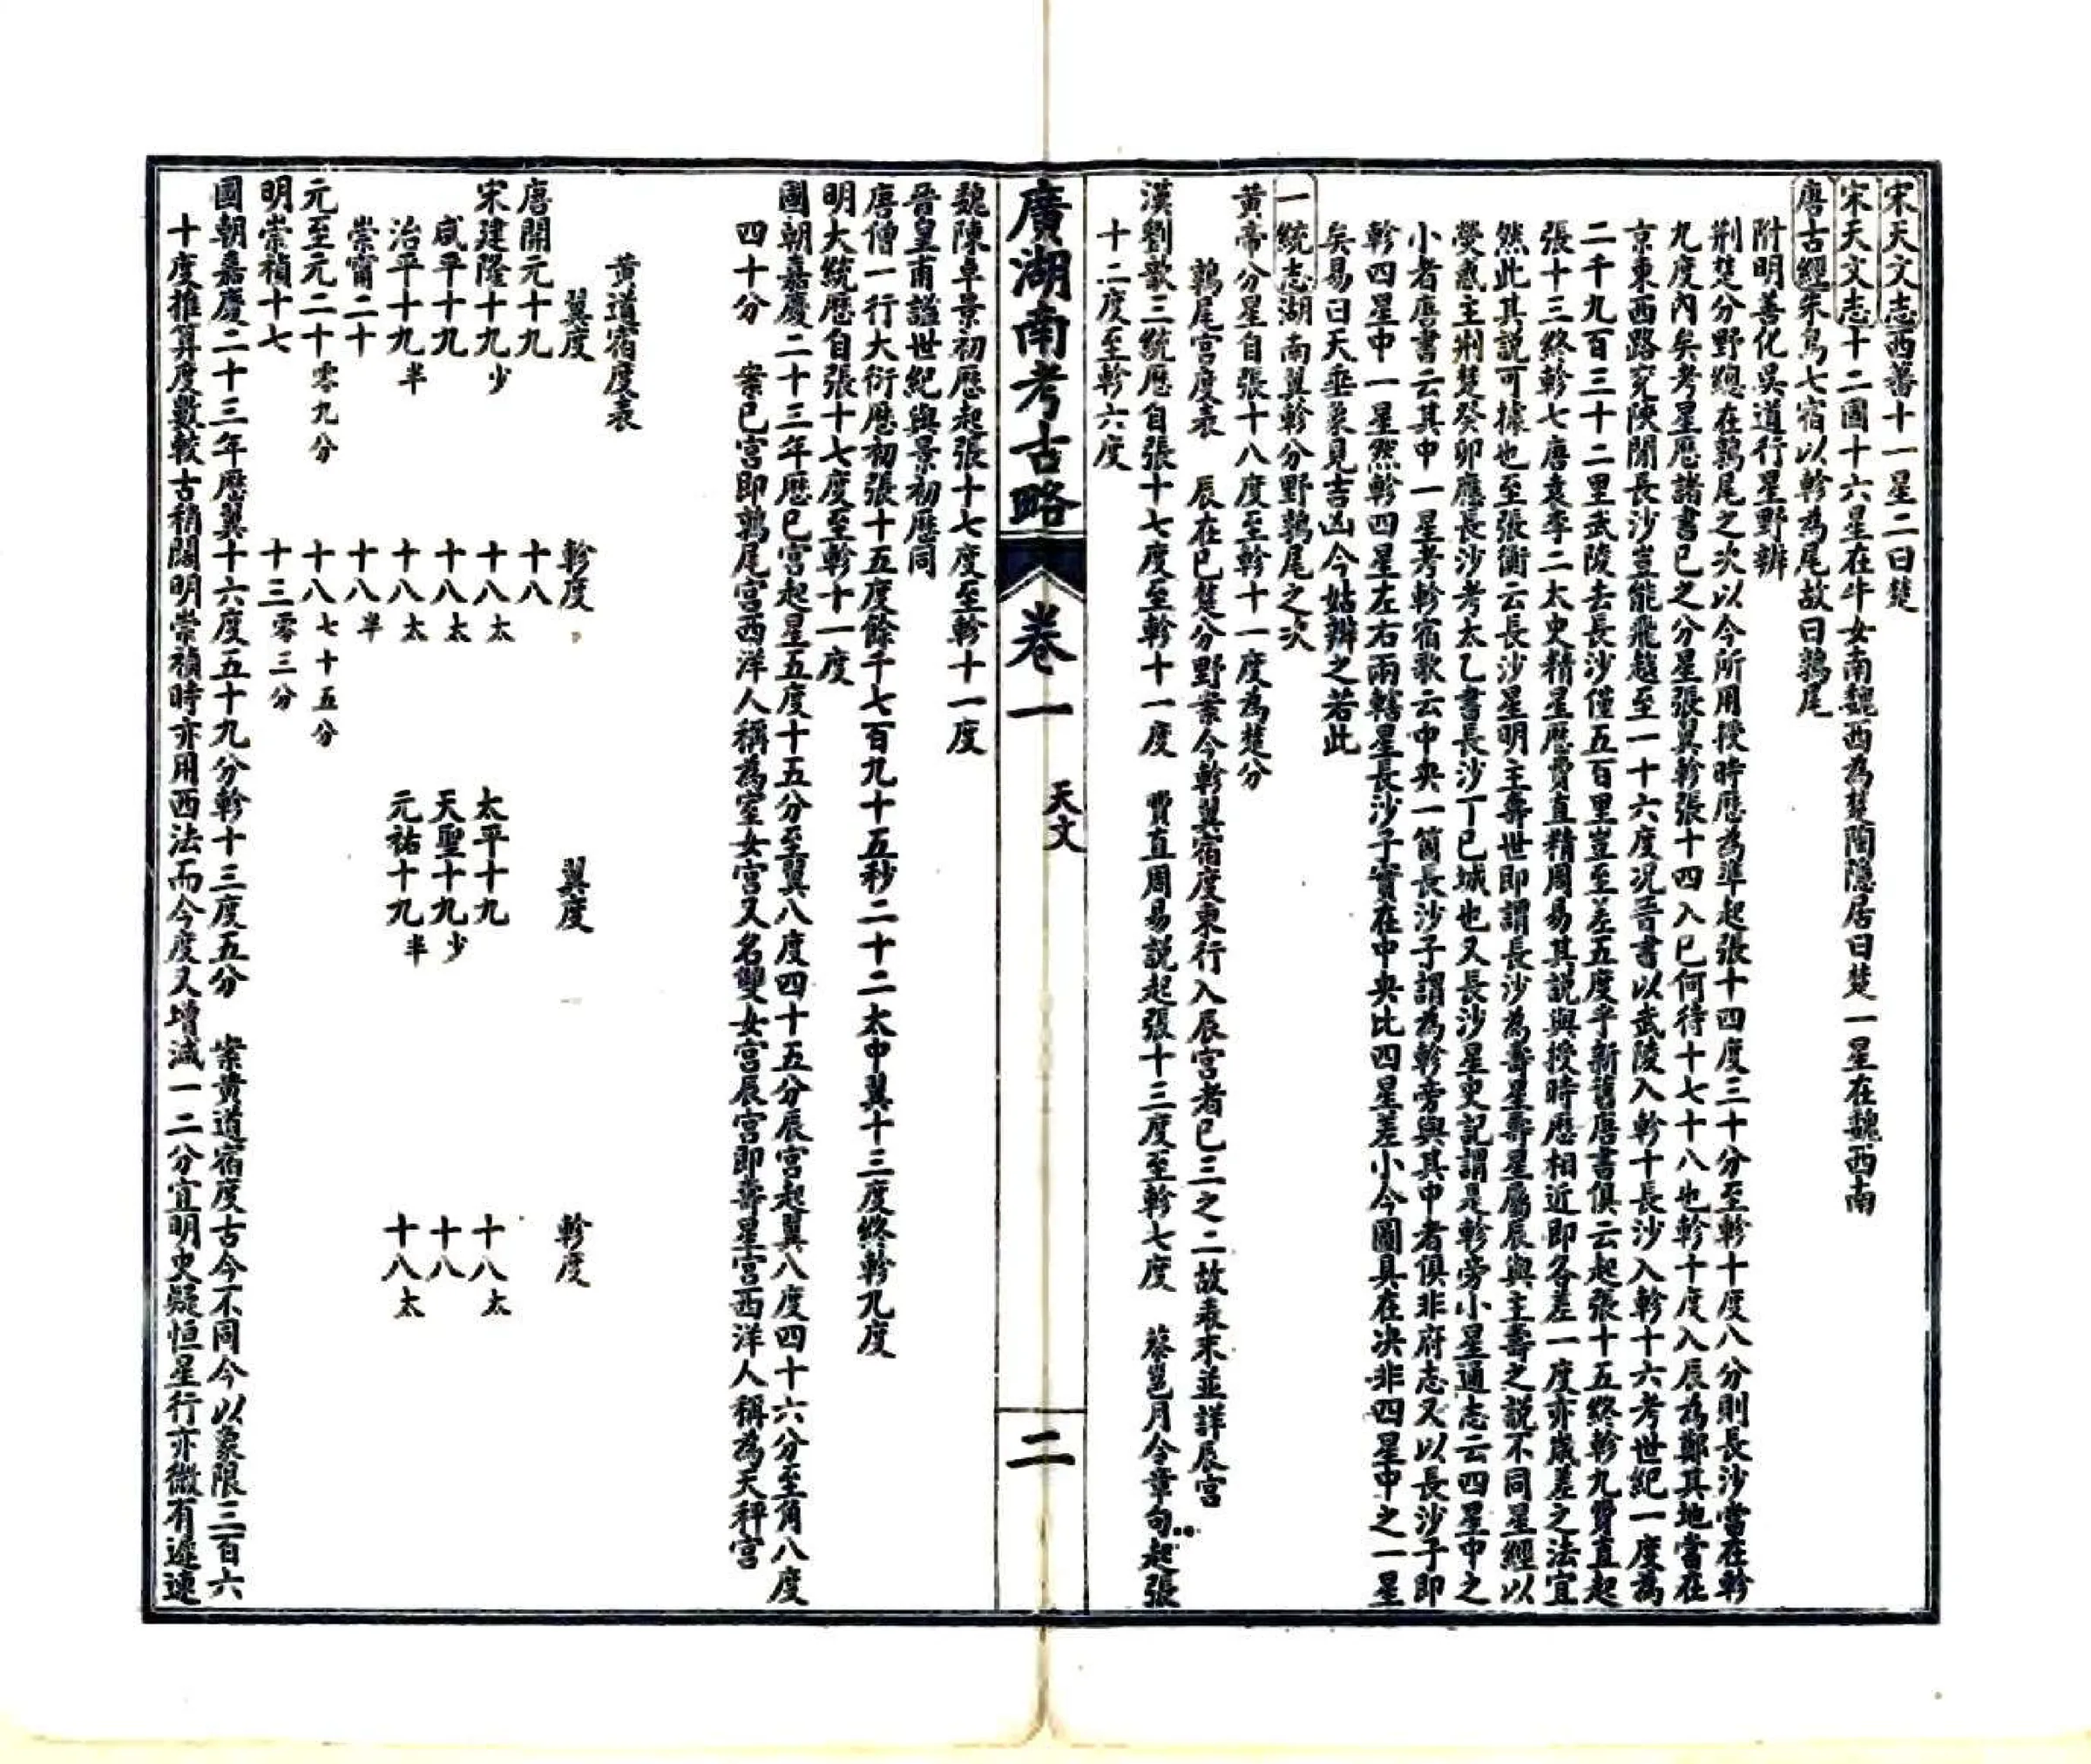 宋天文志西蕃十一星二曰楚
宋天文志十二國十六星在牛女南魏西為楚陶隱居曰楚一星在魏西南
唐古經朱鳥七宿以軫為尾故曰鶉尾
附明善化吳道行星野辨
荆楚分野總在鶉尾之次以今所用授時厯為準起張十四度三十分至軫十度八分則長沙當在軫
九度內矣考星厯諸書巳之分星張翼軫張十四入巳何待十七十八也軫十度入辰為鄭其地當在
京東西路兖陝閒長沙豈能飛越至一十六度况晉書以武陵入軫十長沙入軫十六考世紀一度為
二千九百三十二里武陵去長沙僅五百里豈至差五度乎新舊唐書俱云起張十五終軫九費直起
張十三終軫七唐袁李二太史精星厯費直精周易其說與授時厯相近即各差一度亦歲差之法宜
然此其說可據也至張衡云長沙星明主壽世即謂長沙為壽星壽星屬辰與主壽之說不同星經以
熒惑主荆楚癸卯應長沙考太乙書長沙丁巳城也又長沙星史記謂是軫旁小星通志云四星中之
小者唐書云其中一星考軫宿歌云中央一箇長沙子謂為軫旁與其中者俱非府志又以長沙子即
軫四星中一星然軫四星左右兩轄星長沙子實在中央比四星差小今圖具在决非四星中之一星
矣易曰天垂象見吉凶今姑辨之若此
一統志湖南翼軫分野鶉尾之次
黃帝分星自張十八度至軫十一度為楚分
鶉尾宮度表　辰在巳楚分野案今軫翼宿度東行入辰宮者巳三之二故表末並詳辰宮
漢劉歆三統厯自張十七度至軫十一度　費直周易說起張十三度至軫七度　蔡邕月令章句起張
十二度至軫六度
廣湖南考古略
卷一
天文
二
魏陳卓景初厯起張十七度至軫十一度
晉皇甫謐世紀與景初厯同
唐僧一行大衍厯初張十五度餘千七百九十五秒二十二太中翼十三度終軫九度
明大統厯自張十七度至軫十一度
國朝嘉慶二十三年厯巳宮起星五度十五分至翼八度四十五分辰宮起翼八度四十六分至角八度
四十分　案巳宮即鶉尾宮西洋人稱為室女宮又名雙女宮辰宮即壽星宮西洋人稱為天秤宮
黃道宿度表
翼度　軫度　翼度　軫度
唐開元十九　十八
宋建隆十九少　十八太　太平十九　十八太
咸平十九　十八太　天聖十九少　十八
治平十九半　十八太　元祐十九半　十八太
崇甯二十　十八半
元至元二十零九分　十八七十五分
明崇禎十七　十三零三分
國朝嘉慶二十三年厯翼十六度五十九分軫十三度五分　案黃道宿度古今不同今以象限三百六
十度推算度數較古稍闊明崇禎時亦用西法而今度又增減一二分宜明史疑恒星行亦微有遲速